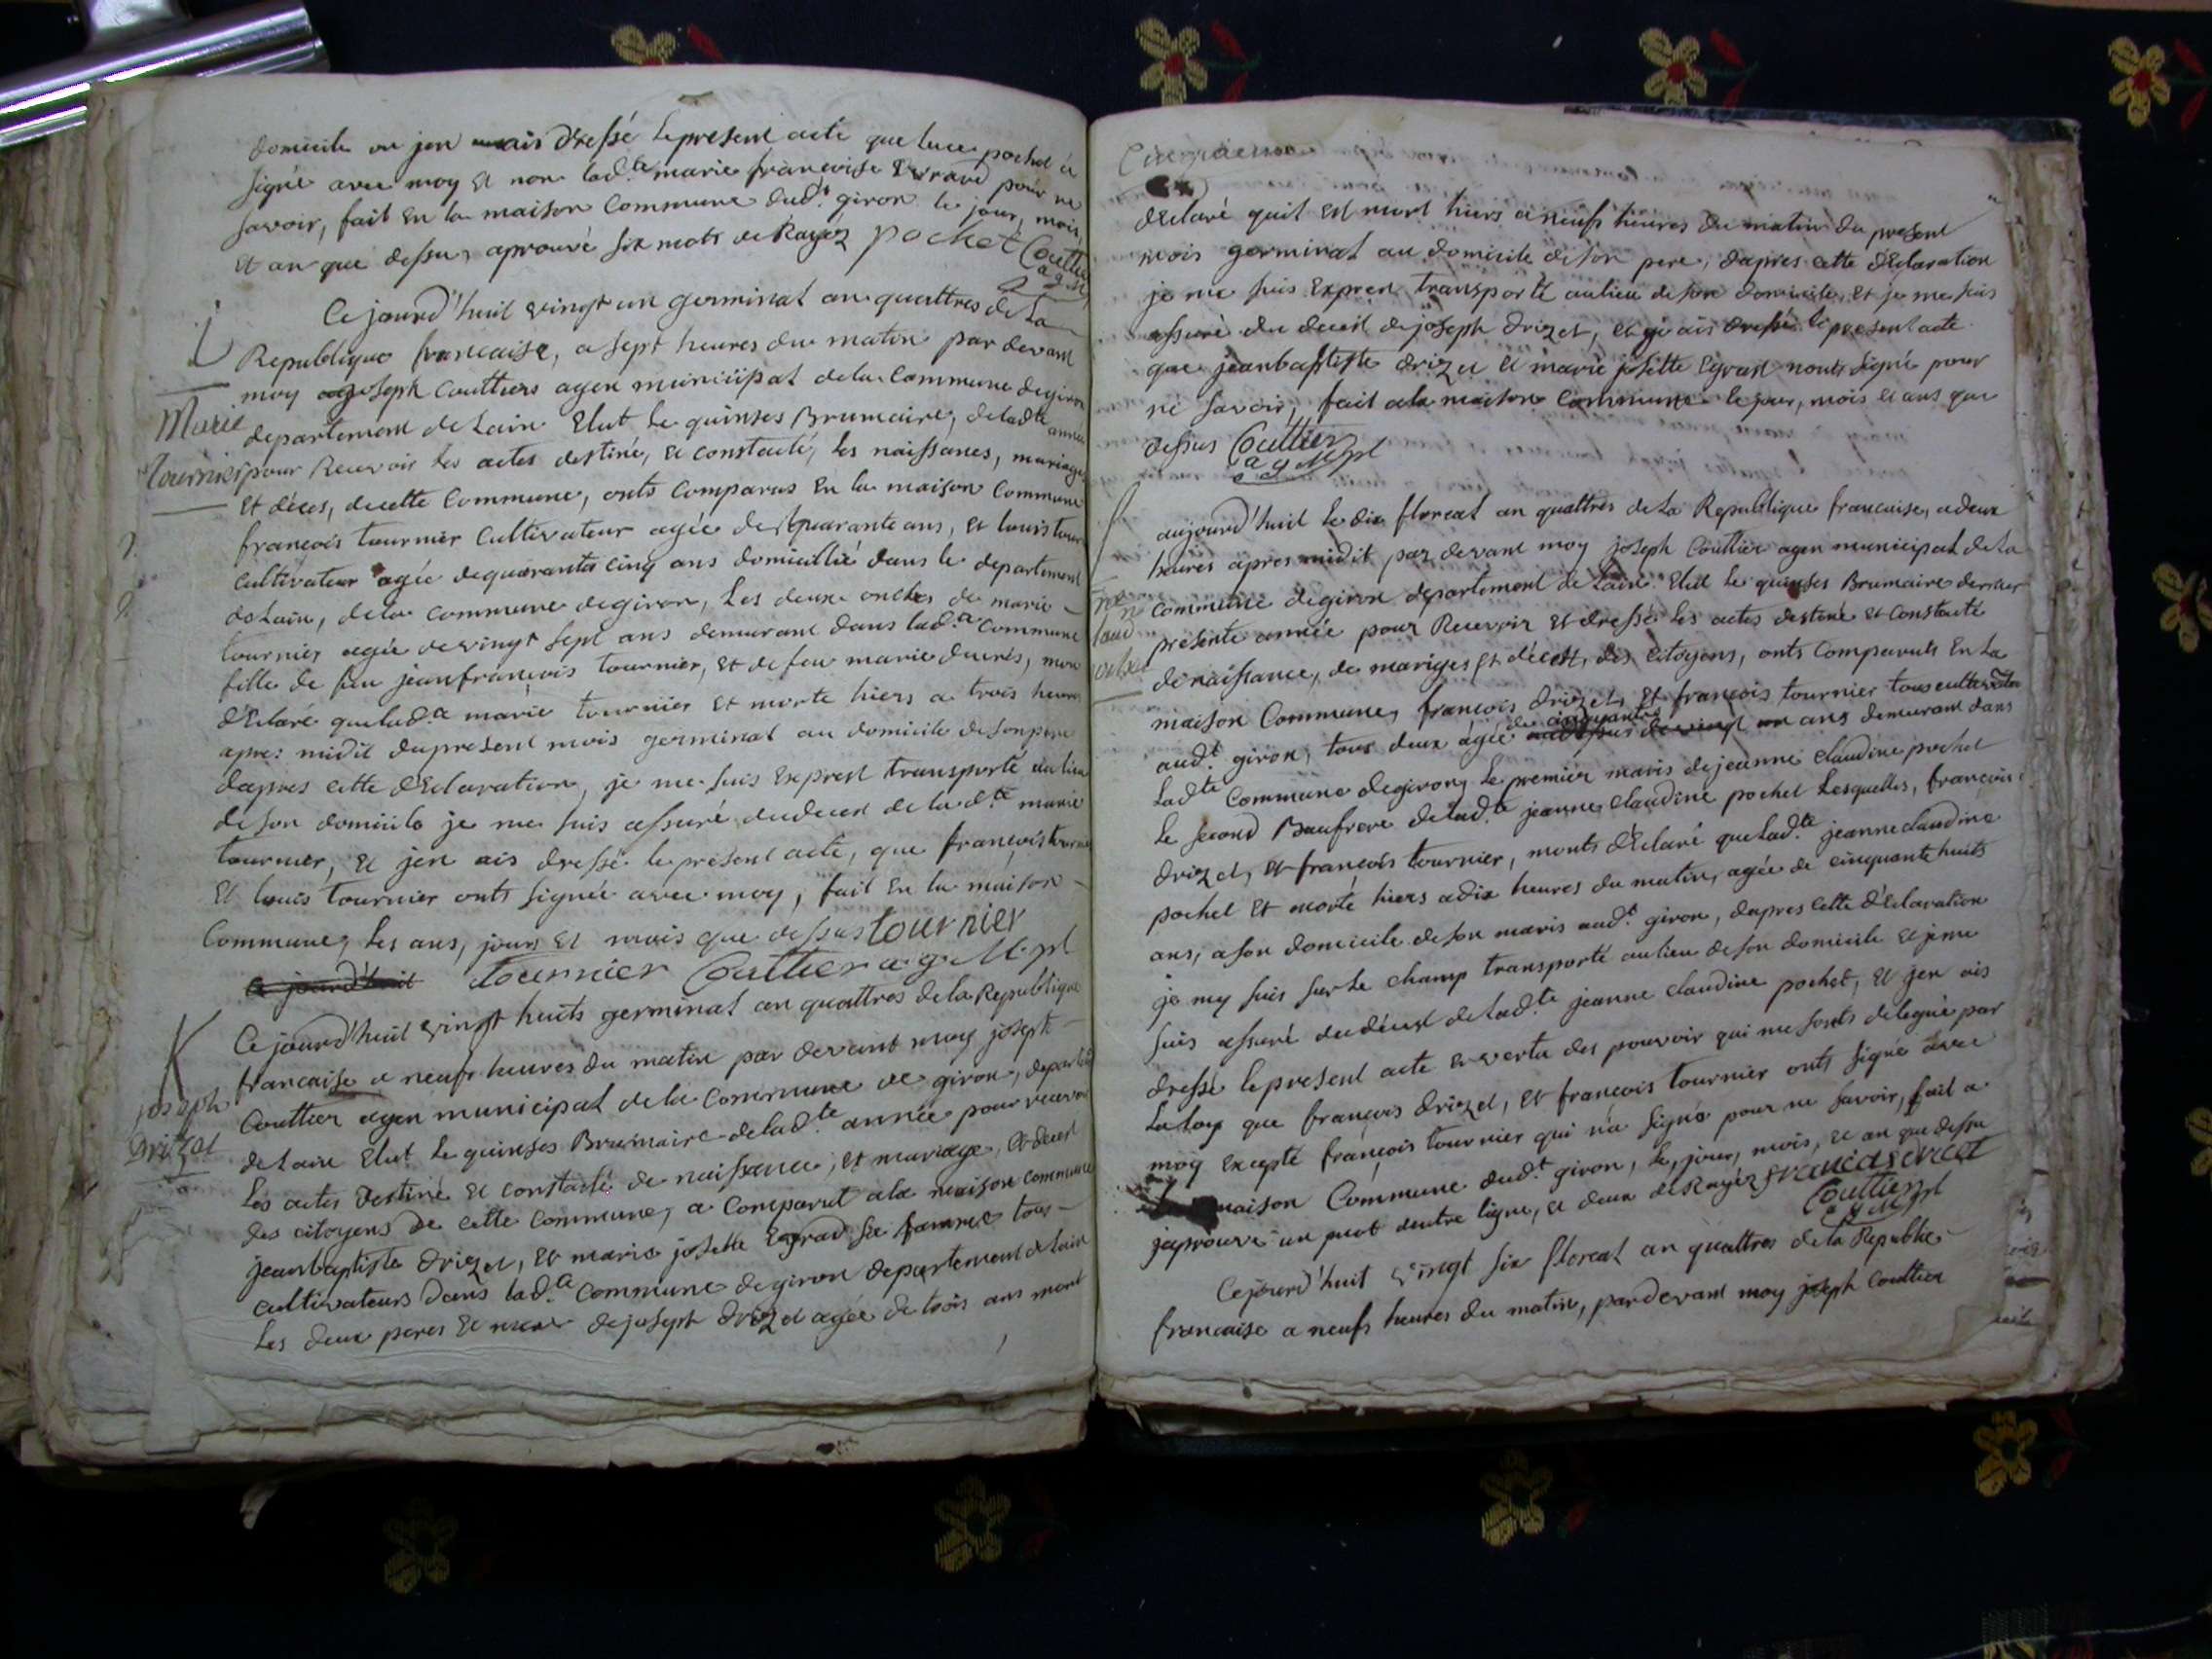 domicile ou jen ais dressé le present acte que luce pochet a
signé avec moy et non lad.te marie francoise pour ne
savoir, fait En la maison Commune dud.t giron le jour, mois,
et an que dessu, aprouvé six mots de Rayéz pochet Coutti
a g
Ce jourd'huit vingt un germinal an quattres de La
Republique francaise, a sept heures du matin par devant
moy joseph Couttiers agen municipal de la Commune de giron
Marie
departement de Lain Elut le quinses Brumaire, de ladte année
tournier
pour Recevoir les actes destiné, et constaté, les naissances, mariages
Et déces, de cette Commune, onts Comparus En la maison Commune
francois tournier Cultivateur agée de quarante ans, et louis tour
Cultivateur agée de quarante cinq ans domicillié dans le departement
de Lain, de la commune de giron, Les deux oncles de marie
tournier agée de vingt sept ans demurant dans lad.e Commune
fille de feu jean francois tournier, et de feu marie ducrés, mon
dEclaré que lad.e marie tournier et morte hiers a trois heures
apres midit du present mois germinal au domicile de son pere
dapres cette dEclaration, je me suis Exprest transporté au lieu
de son domicile je me suis assuré du decest de lad.te marie
tournier, et jen ais dressé le présent acte, que francois tourni
Et louis tournier onts signée avec moy, fait En la maison
Commune, Les ans, jours et mois que dessus tournier
Ce jourd'huit tournier Couttier a g M pl
K
Ce jourd'huit vingt huits germinal an quattres de la Republique
francaise a neufs heures du matin par devant moy joseph
joseph
Couttier agen municipal de la Commune de giron, depart
Drizet
de Lain Elut le quinses Brumaire de lad.te année pour recevoir
Les actes destiné et constaté de naissance, et mariage, et decest
des citoyens de cette Commune, a Comparut a la maison commune
jean baptiste drizet, et marie josette Egrad sa famme tous
cultivateurs dans lad.e Commune de giron departement de Lain
Les deux peres et mere de joseph drizet agée de trois ans mont
dEclaré quil est mort hiers a neufs heures du matin du present
mois germinal au domicile de son pere, dapres cette dEclaration
je me suis Exprest transporté au lieu de son domicile, et je me suis
assuré du decest de joseph drizet, et jai dressé le present acte
que jean baptiste drizet et marie josette Egrad nonts signé pour
ne savoir, fait a la maison Commune le jour, mois et ans que
dessus Couttier
a g M pl
aujourd'huit le dix floreal an quattres de La Republique francaise, a deux
heures apres midit par devant moy joseph Couttier agen municipal de la
Commune de giron departement de Lain Elut le quinses Brumaire dernier
présente année pour Recevoir et dressé les actes destiné et Constaté
de naissance, de mariges et décest, des citoyens, onts Comparuts En La
maison Commune, francois drizet, et francois tournier tous cultivat
de cinquante
aud.t giron, tous deux agée ans demurant dans
Ladte Commune de giron, Le premier maris de jeanne claudine pochet
Le second Beaufrere de lad.te jeanne claudine pochet Lesquelles, francois
drizet, et francois tournier, monts dEclaré que lad.te jeanne claudine
pochet Et morte hiers a dix heures du matin, agée de cinquante huits
ans, a son domicile de son maris aud.t giron, dapres cette dEclaration
je my suis sur le champ transporté au lieu de son domicile et je me
suis assuré du décest de lad.te jeanne claudine pochet, et jen ais
dressé le present acte En vertu des pouvoir qui me sonts delegué par
La loy que francois drizet, et francois tournier onts signé avec
moy Excepté francois tournier qui na signé pour ne savoir, fait a
maison Commune dud.t giron, le, jour, mois, et an que dessu
japrouve un mot dentre ligne, et deux de Rayéz francois
Couttier
a g M pl
Ce jourd'huit vingt six floreal an quattres de la Republic
francaise a neufs heures du matin, par devant moy joseph Couttier